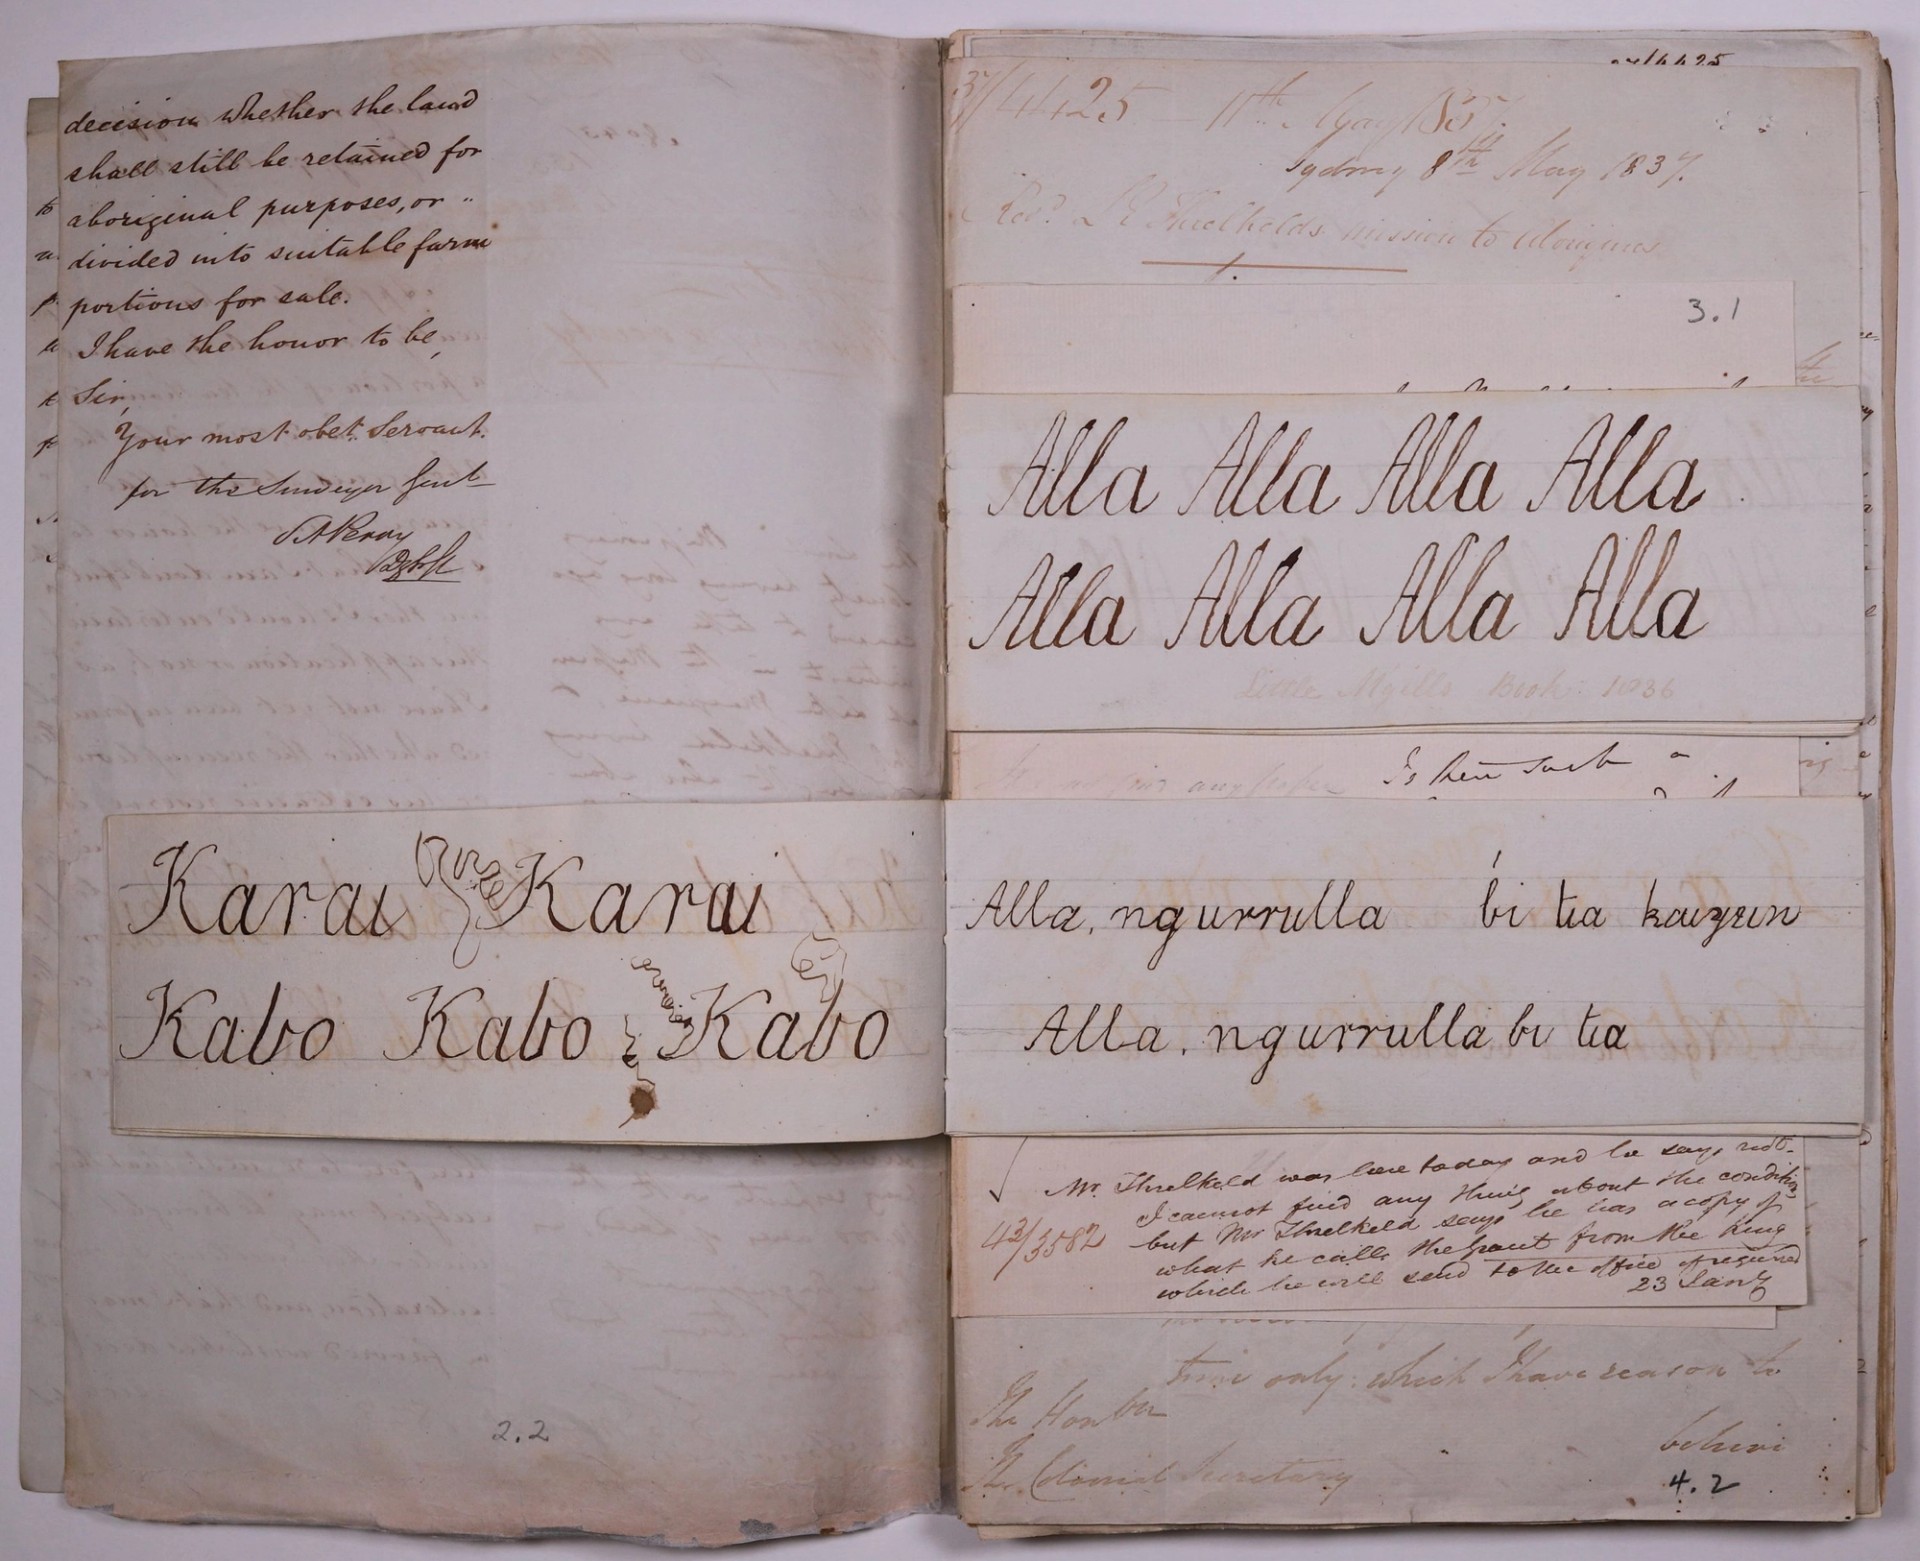 decision whether the land
shall still be retained for
aboriginal purposes, or "
divided into suitable farm
portions for sale.
I have the honor to be,
Sir,
Your most obet. Servant.
for the Surveyor Genl
SAPerry
2.2
Karai Karai
Kabo Kabo Kabo
37/4425 11th May 1837.
Sydney 8th May 1837.
Revd. L E Threlkelds mission to Aborigines
3.1
Alla Alla Alla Alla
Alla Alla Alla Alla
Little M,gills Book. 1836
Is there such a
Alla, ngurrulla bi tia kaiyu
Alla, ngurrulla bi tia
Mr. Threlkeld was here today and he says not.
I cannot find any thing about the condition
but Mr Threlkeld says he has a copy of
what he calls the grant from the King
which he will send to the office if required
23 Jany
42/3582
time only: which I have reason to
The Honble
The Colonial Secretary
believe
4.2